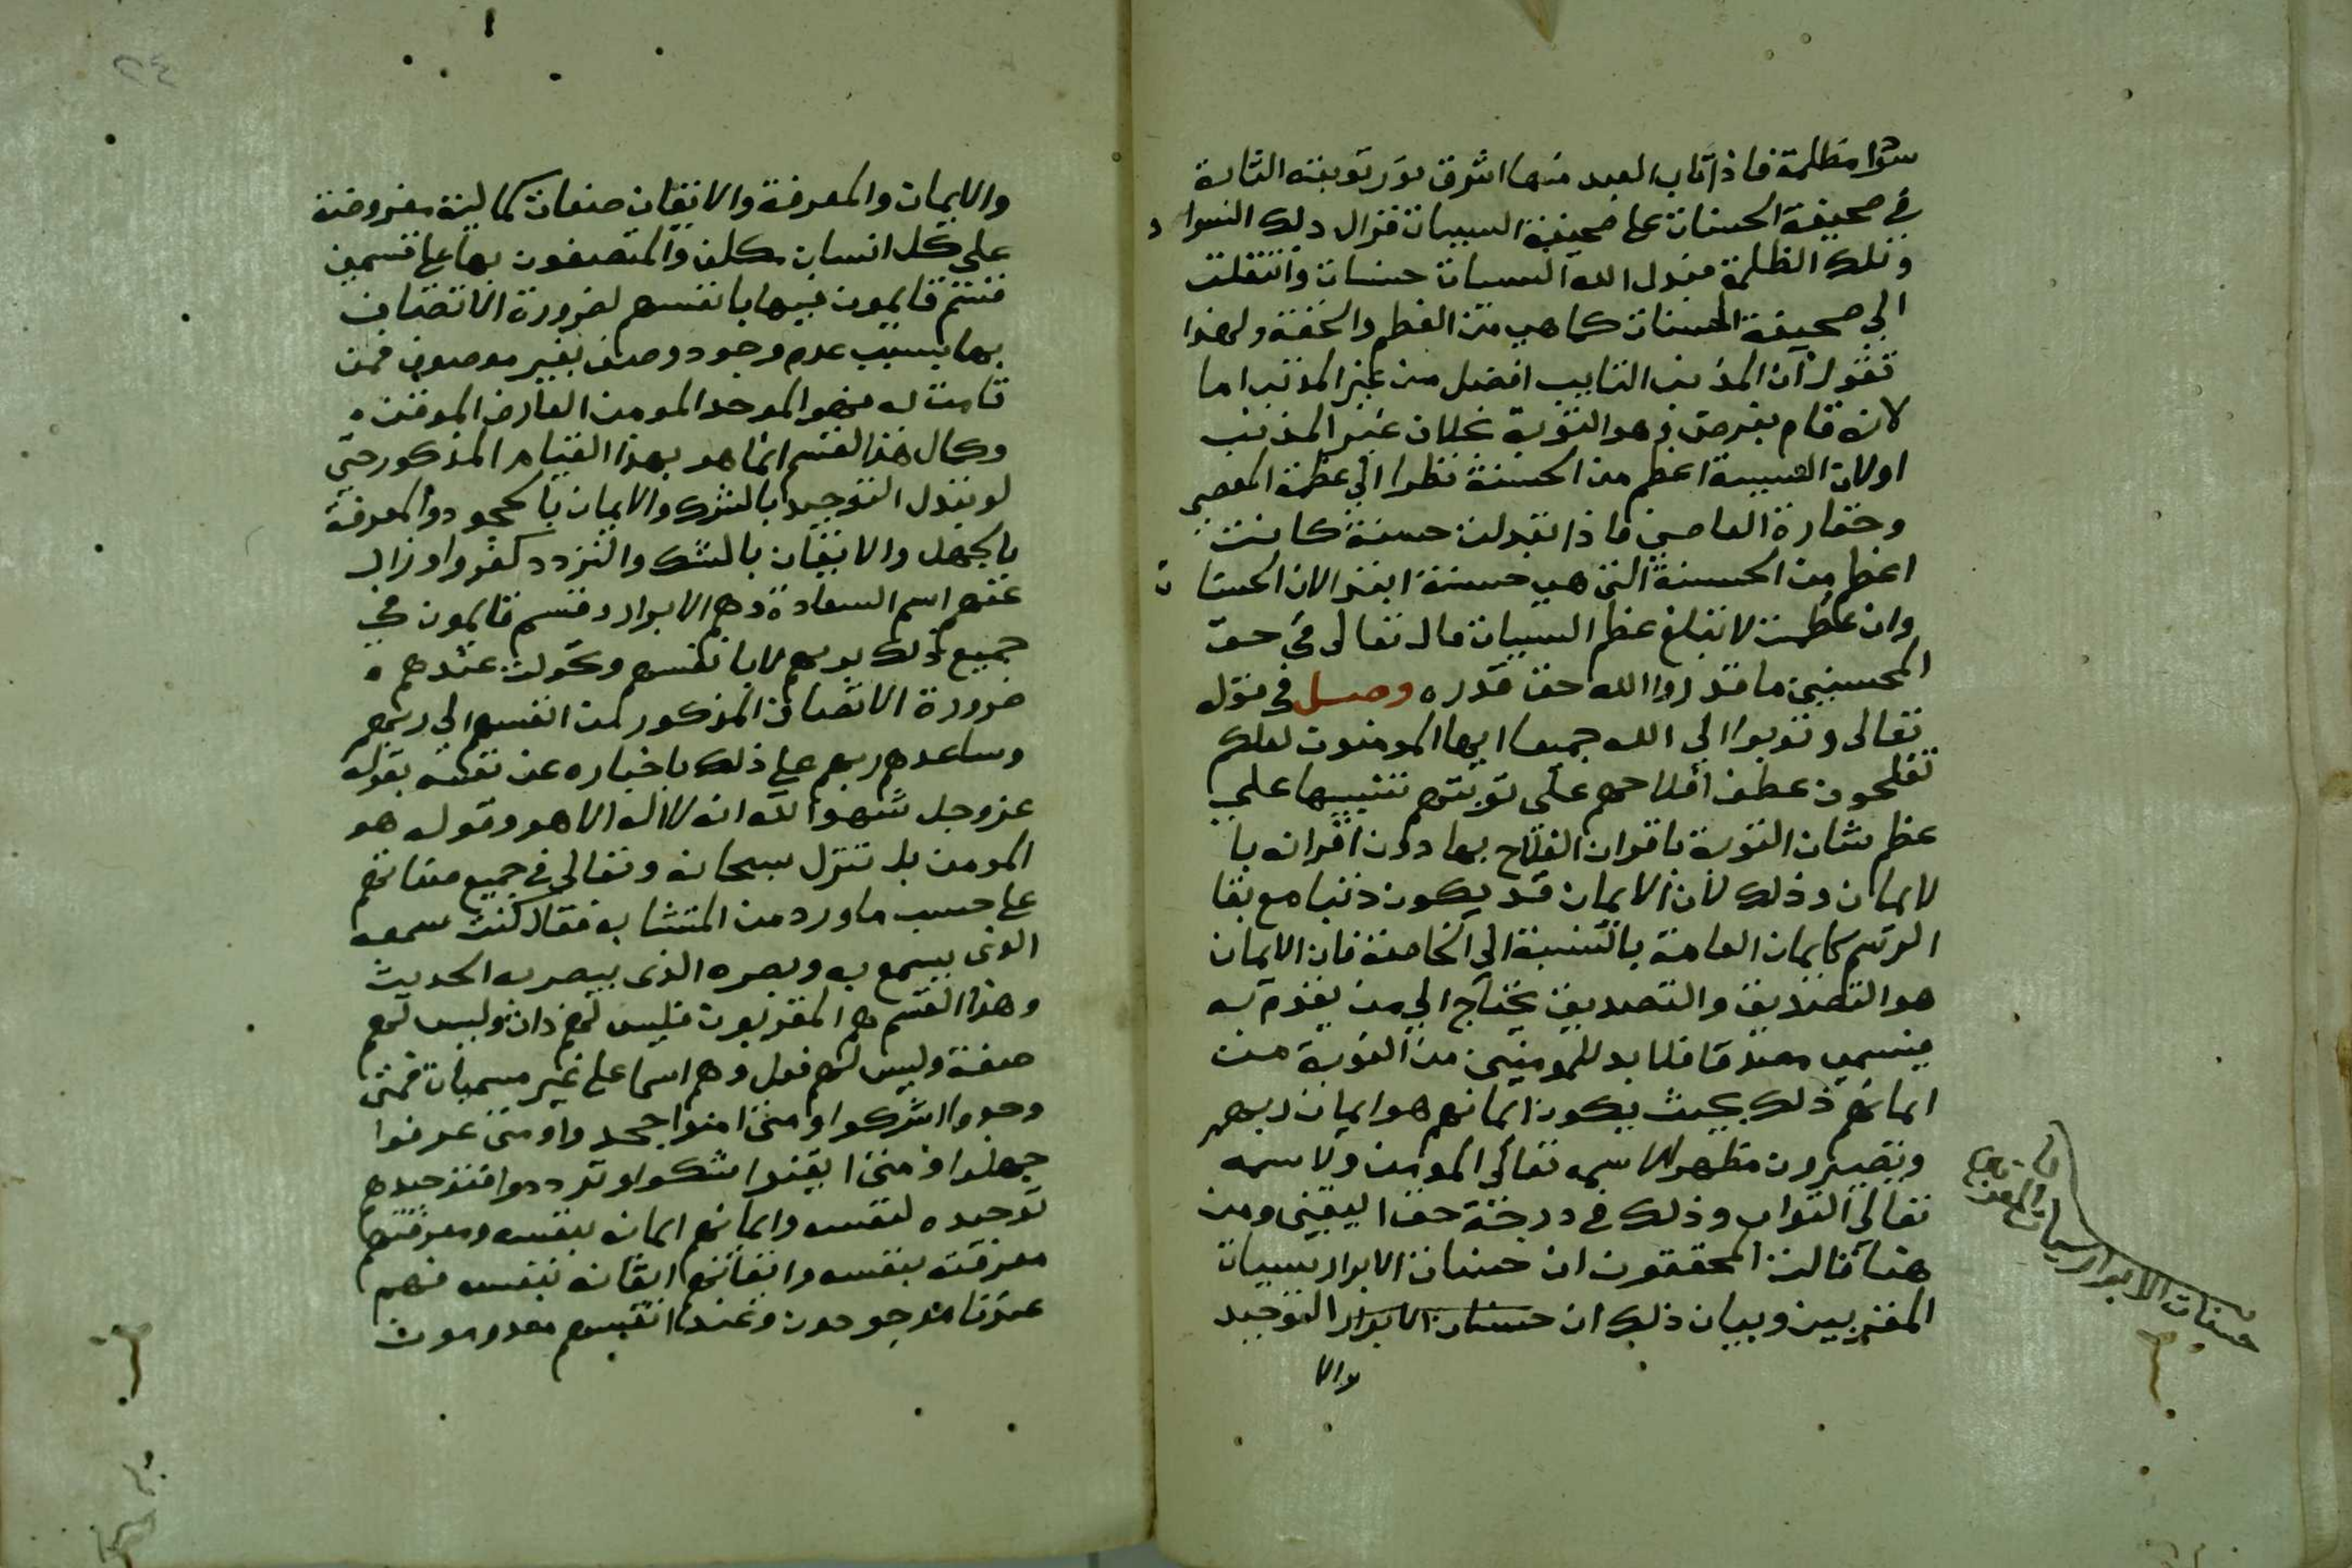 سودا مظلمة فاذا تاب العبد منها اشرق نور توبته الثابتة
في صحيفة الحسنات على صحيفة السييات فزال ذلك السواد
وتلك الظلمة فبدل الله السيات حسنات وانتقلت
الى صحيفة الحسنات كما هي من العظم والخفة ولهذا
نقول ان المذنب التايب افضل من غير المذنب اما
لانه قام بفرض وهو التوبة بخلاف غير المذنب
اولان السيية اعظم من الحسنة نظرا الى عظمة المعصي
وحقارة العاصي فاذا تبدلت حسنة كانت
اعظم من الحسنة التي هي حسنة ابتدا لان الحسنات
وان عظمت لا تبلغ عظم السييات قال تعالى في حق
المحسنين ما قدروا الله حق قدره وصل في قوله
تعالى وتوبوا الى الله جميعا ايها المومنون لعلكم
تفلحون عطف افلاحهم على توبتهم تنبيها على
عظم شان التوبة باقران الفلاح بها دون اقرانه با
لايمان وذلك لان الايمان قد يكون ذنبا مع بقا
الرسم كايمان العامة بالنسبة الى الخاصة فان الايمان
هو التصديق والتصديق يحتاج الى من يقوم به
فيسمى مصدقا فلا بد للمومنين من التوبة من
ايمانهم ذلك بحيث يكون ايمانهم هو ايمان ربهم
ويصيرون مظهرا لاسمه تعالى المومن ولاسمه
تعالى التواب وذلك في درجة حق اليقين ومن
هنا قالت المحققون ان حسنات الابرار سييات
المقربين وبيان ذلك ان حسنات الابرار التوحيد
والا
حسنات الابرار سيات المقربين
والايمان والمعرفة والايقان صفات كمالية مفروضة
على كل انسان مكلف والمتصفون بها على قسمين
قسم قايمون فيها بانفسهم لضرورة الاتصاف
بها بسبب عدم وجود وصف بغير موصوف فمن
قامت له فهو الموحد المومن العارف الموقن
وكمال هذا القسم انما هو بهذا القيام المذكور حتى
لو تبدل التوحيد بالشرك والايمان بالجحود والمعرفة
بالجهل والايقان بالشك والتردد كفروا وزال
عنهم اسم السعادة وهم الابرار وقسم قايمون في
جميع ذلك بربهم لا بانفسهم وتحولت عندهم
ضرورة الاتصاف المذكور من انفسهم الى ربهم
وساعدهم ربهم على ذلك باخباره عن نفسه بقوله
عز وجل شهد الله انه لا اله الا هو وقوله هو
المومن بل تنزل سبحانه وتعالى في جميع صفاتهم
على حسب ما ورد من المتشابه فقال كنت سمعه
الذي يسمع به وبصره الذي يبصر به الحديث
وهذا القسم هم المقربون فليس لهم ذات وليس لهم
صفة وليس لهم فعل وهم اسما على غير مسميات فمتى
وحدوا اشركوا ومتى امنوا جحدوا ومتى عرفوا
جهلوا ومتى ايقنوا شكوا وترددوا فتوحيدهم
توحيده لنفسه وايمانهم ايمانه بنفسه ومعرفتهم
معرفته بنفسه وايقانهم ايقانه بنفسه فهم
عندنا موجودون وعند انفسهم معدومون
٢٤